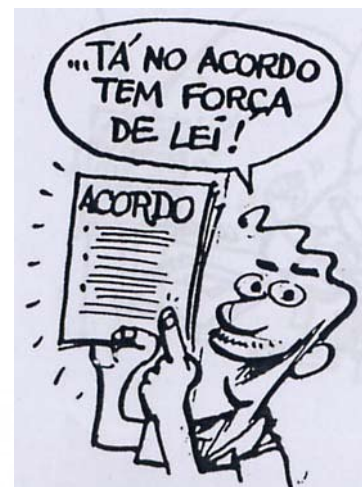 ...TÁ NO ACORDO
TEM FORÇA
DE LEÍ!
ACORDO